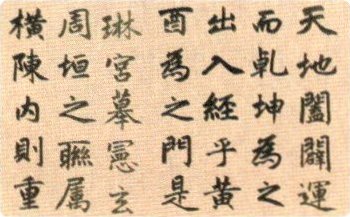 天地闔闢運
而乹坤為之
出入經乎黃
酉為之門是
琳宮摹憲玄
周垣之聯属
橫陳內則重